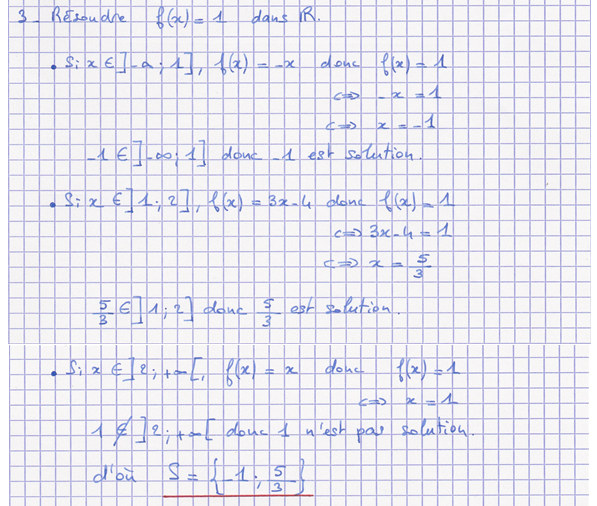 3 - Résoudre f(x) = 1 dans ℝ.
• Si x ∈ ]-∞ ; 1], f(x) = -x donc f(x) = 1
⟺ -x = 1
⟺ x = -1
-1 ∈ ]-∞ ; 1] donc -1 est solution.
• Si x ∈ ]1 ; 2], f(x) = 3x-4 donc f(x) = 1
⟺ 3x-4 = 1
⟺ x = 5/3
5/3 ∈ ]1 ; 2] donc 5/3 est solution.
• Si x ∈ ]2 ; +∞[, f(x) = x donc f(x) = 1
⟺ x = 1
1 ∉ ]2 ; +∞[ donc 1 n'est pas solution.
d'où S = {-1 ; 5/3}